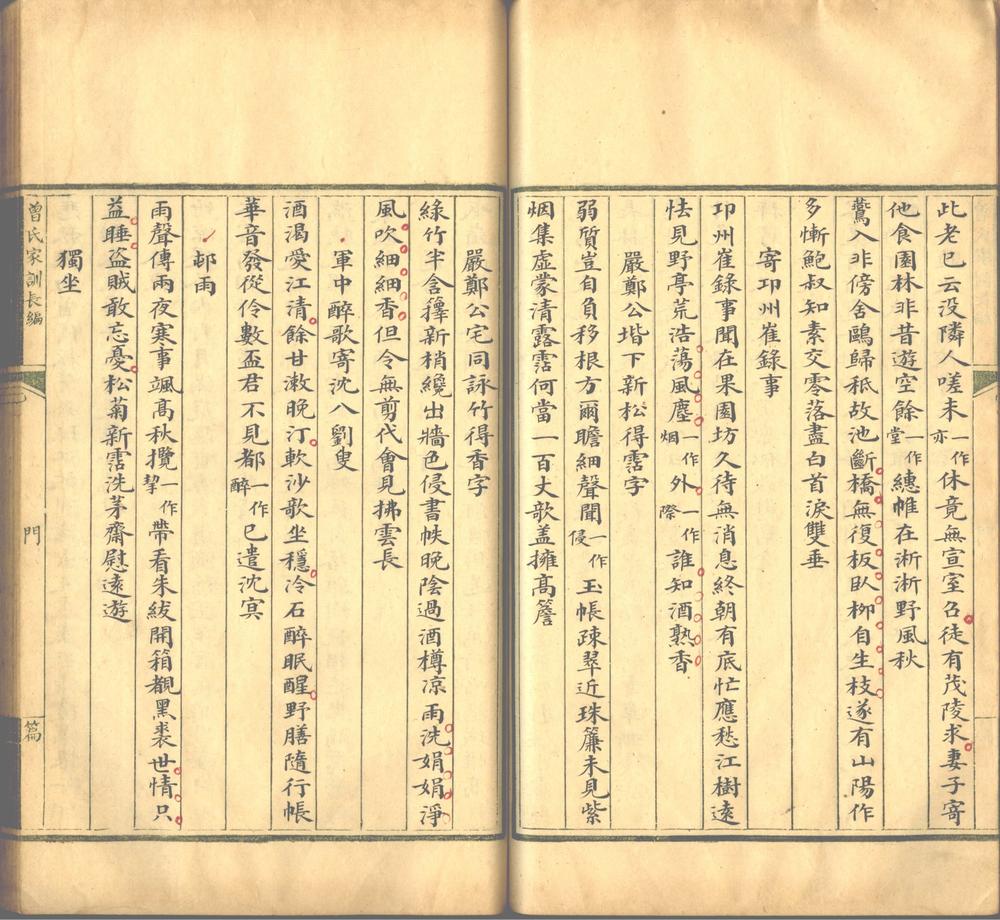 此老已云没隣人嗟未一作亦休竟無宣室召徒有茂陵求妻子寄
他食園林非昔遊空餘一作堂繐帷在淅淅野風秋
鷰入非傍舍鷗歸秪故池斷橋無復板臥柳自生枝遂有山陽作
多慚鮑叔知素交零落盡白首淚雙垂
寄邛州崔錄事
邛州崔錄事聞在果園坊久待無消息終朝有底忙應愁江樹遠
怯見野亭荒浩蕩風塵一作烟外一作際誰知酒熟香
嚴鄭公堦下新松得霑字
弱質豈自負移根方爾瞻細聲聞一作侵玉帳疎翠近珠簾未見紫
烟集虛蒙清露霑何當一百丈歌盖擁高簷
嚴鄭公宅同詠竹得香字
綠竹半含籜新梢纔出牆色侵書帙晚陰過酒樽凉雨洗娟娟淨
風吹細細香但令無剪伐會見拂雲長
軍中醉歌寄沈八劉叟
酒渴愛江清餘甘漱晚汀軟沙歌坐穩冷石醉眠醒野膳隨行帳
華音發從伶數盃君不見都一作醉已遣沈冥
邨雨
雨聲傳兩夜寒事颯高秋攬一作挈帶看朱紱開箱覩黑裘世情只
益睡盜賊敢忘憂松菊新霑洗茅齋慰遠遊
獨坐
曾氏家訓長編
門
篇